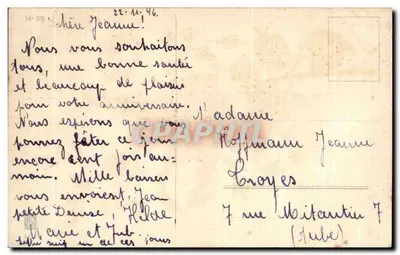 N° 230
22-11-46.
chère Jeanne!
Nous vous souhaitons
tous, une bonne santé
et beaucoup de plaisir
pour votre anniversaire.
Nous espérons que vous
pourrez fêter ce jour
encore cent fois au-
moin. Mille baisers
vous envoient, Jean
petite Denise, Hilde
et Jub.
suit un de ces jours
Madame
Hoffmann Jeanne
Troyes
7 rue Mitantier 7
(Aube)
CPARAMA